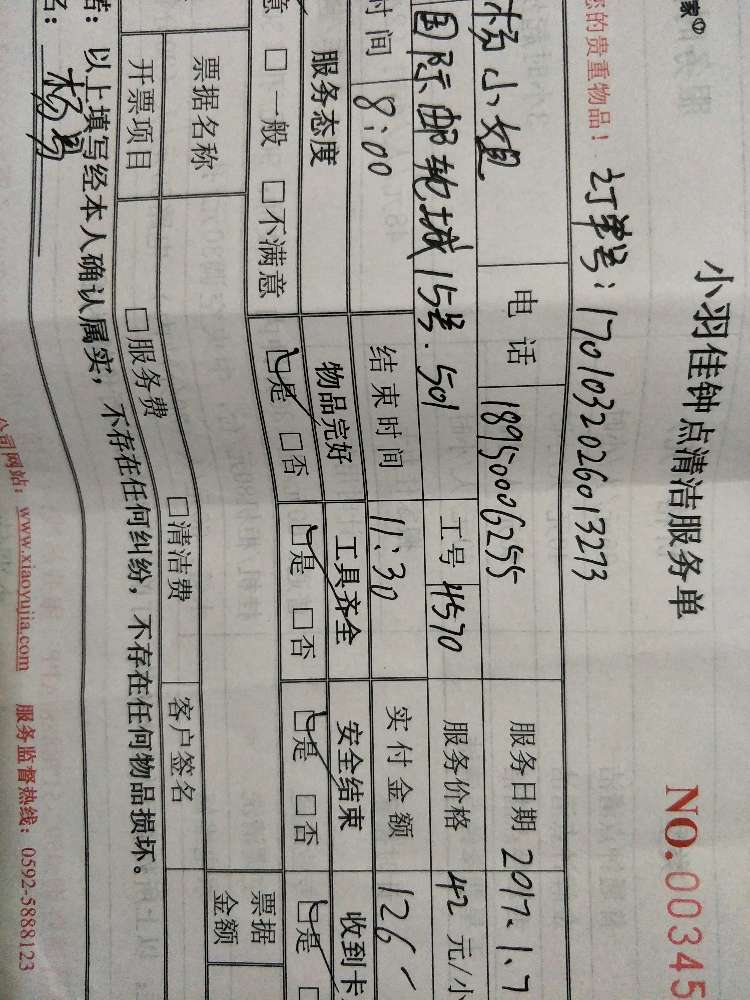 家①
小羽佳钟点清洁服务单
NO.00345
您的贵重物品！
订单号：1701032026013273
杨小姐 电话 18950006255 服务日期 2017.1.7
国际邮轮城15号.501 工号 4570 服务价格 42 元/小
时间 8:00 结束时间 11:30 实付金额 126
服务态度 物品完好 工具齐全 安全结束 收到卡
意 □一般 □不满意 □是 □否 □是 □否 □是 □否 □是
票据名称 票据金额
开票项目 □服务费 □清洁费 客户签名
诺：以上填写经本人确认属实，不存在任何纠纷，不存在任何物品损坏。
名：
公司网站：www.xiaoyujia.com 服务监督热线：0592-5888123